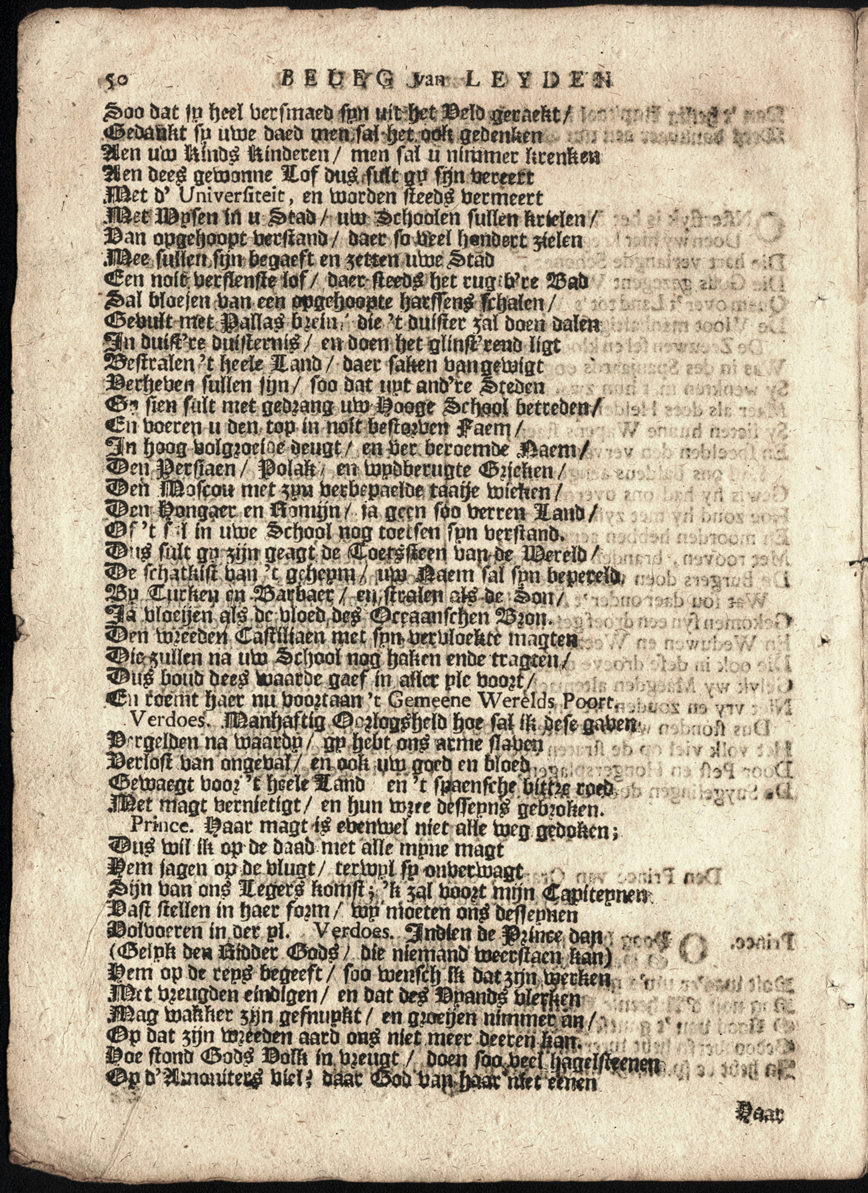 50 BELEG van LEYDEN
Soo dat sy heel versmaed syn uit het Veld geraekt/
Gedankt sy uwe daed men sal het ook gedenken
Aen uw Kinds Kinderen/ men sal u nimmer krenken
Aen dees gewonne Lof dus sult gy sijn vereert
Met d' Universiteit, en worden steeds vermeert
Met Wysen in u Stad/ uw Schoolen sullen krielen/
Van opgehoopt verstand/ daer so veel hondert zielen
Mee sullen sijn begaeft en zetten uwe Stad
Een noit verslenste lof/ daer steeds het rugtb're Bad
Sal bloejen van een opgehoopte harssens schalen/
Gevult met Pallas brein/ die 't duister zal doen dalen
In duist're duisternis/ en doen het glinst'rend ligt
Bestralen 't heele Land/ daer saken van gewigt
Verheven sullen sijn/ soo dat uyt and're Steden
Gy sien sult met gedrang uw Hooge School betreden/
En voeren u den top in noit bestorven Faem/
In hoog volgroeide deugt/ en ver beroemde Naem/
Den Persiaen/ Polak/ en wydberugte Grieken/
Den Moscou met zyn verbepaelde taaije wieken/
Den Hongaer en Romijn/ ja geen soo verren Land/
Of 't sal in uwe School nog toetsen syn verstand.
Dus sult gy zijn geagt de Toetssteen van de Wereld/
De schatkist van 't geheym/ uw Naem sal syn bepereld,
By Turken en Barbaer/ en stralen als de Son/
Ja vloeijen als de vloed des Oceaanschen Bron.
Den wreeden Castiliaen met syn vervloekte magten
Die zullen na uw School nog haken ende tragten/
Dus houd dees waarde gaef in aller yle voort/
En roemt haer nu voortaan 't Gemeene Werelds Poort.
Verdoes. Manhaftig Oorlogsheld hoe sal ik dese gaven
Vergelden na waardy/ gy hebt ons arme slaven
Verlost van ongeval/ en ook uw goed en bloed
Gewaegt voor 't heele Land en 't spaensche bittre roed
Met magt vernietigt/ en hun wree desseyns gebroken.
Prince. Haar magt is evenwel niet alle weg gedoken;
Dus wil ik op de daad met alle myne magt
Hem jagen op de vlugt/ terwyl sy onverwagt
Sijn van ons Legers komst; 'k zal voort mijn Capiteynen
Vast stellen in haer form/ wy moeten ons desseynen
Volvoeren in der yl. Verdoes. Indien de Prince dan
(Gelyk den Ridder Gods/ die niemand weerstaen kan)
Hem op de reys begeeft/ soo wensch ik dat zijn werken
Met vreugden eindigen/ en dat des Vyands vlerken
Mag wakker zijn gefnuykt/ en groeijen nimmer an/
Op dat zijn wreeden aard ons niet meer deeren kan.
Hoe stond Gods Volk in vreugt/ doen soo veel hagelsteenen
Op d'Amoniters viel? daar God van haar niet eenen
Haar